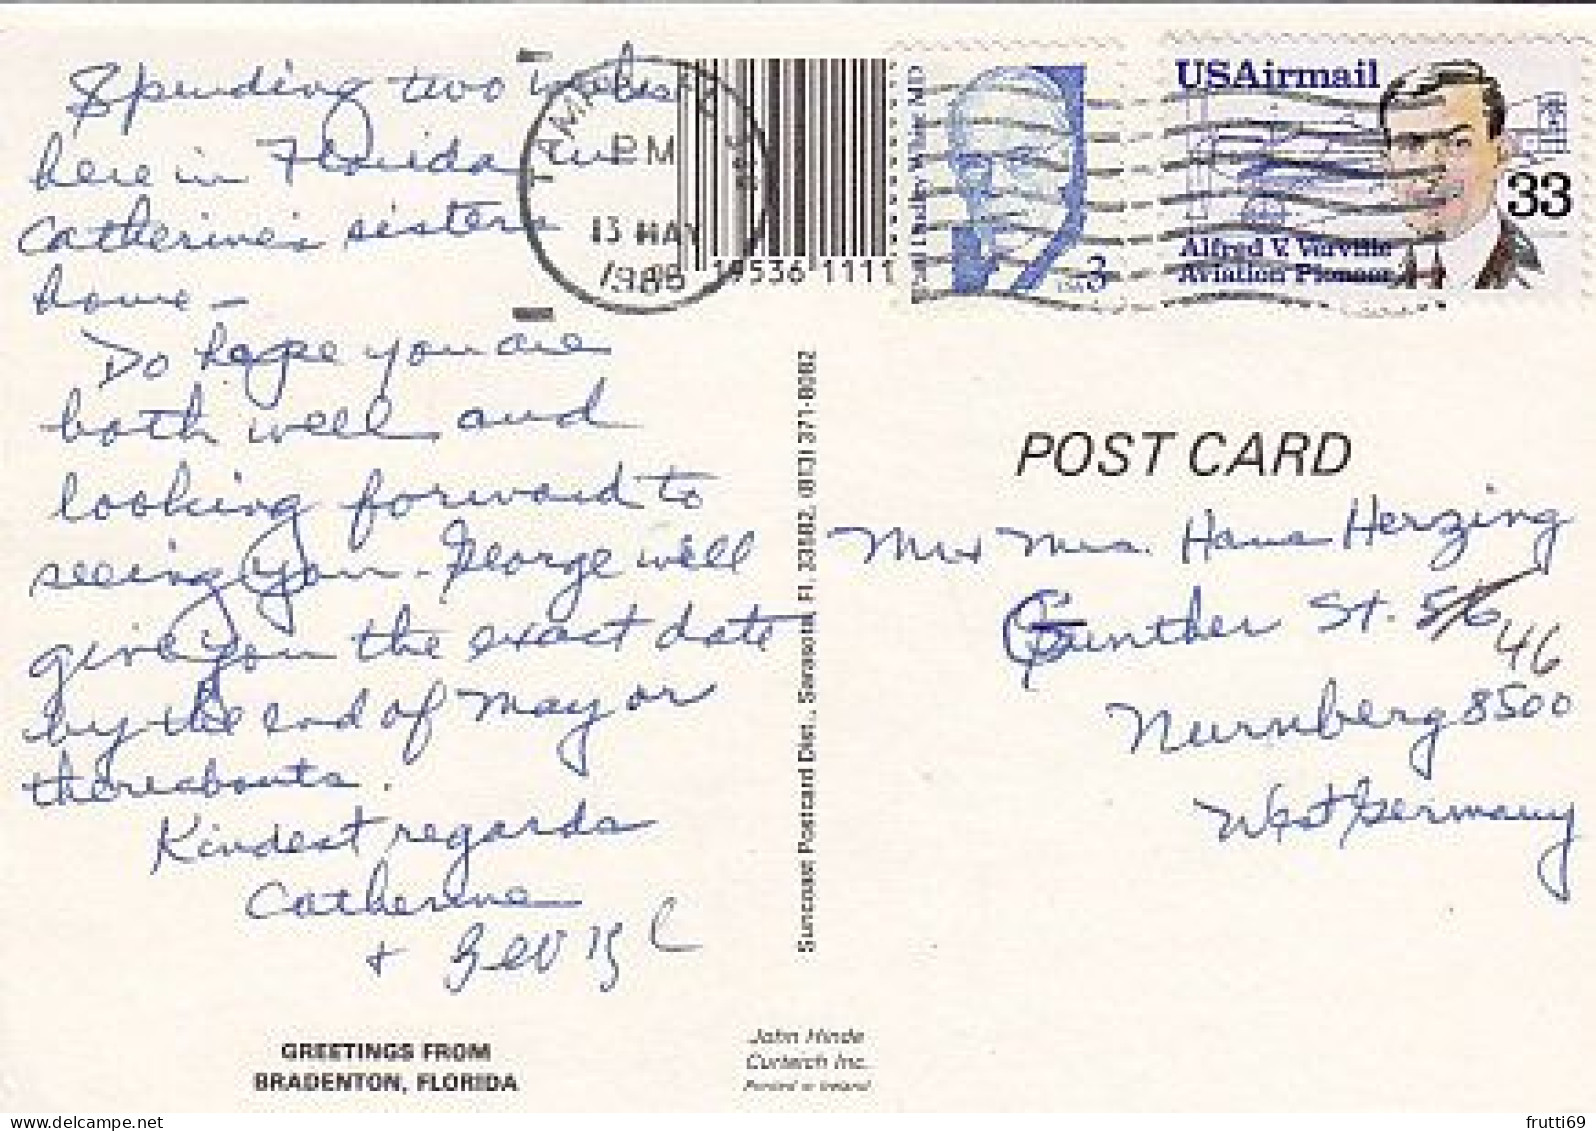 Spending two weeks
here in Florida in
Catherine's sisters
home -
Do hope you are
both well and
looking forward to
seeing you. George will
give you the exact date
by the end of May or
thereabouts.
Kindest regards
Catherine
+ George
GREETINGS FROM
BRADENTON, FLORIDA
TAMPA, FL
PM
13 MAY
1986
19536 1111
Suncoast Postcard Dist., Sarasota, Fl. 33582, (813) 371-8082
John Hinde
Curteich Inc.
Printed in Ireland
Paul Dudley White MD
USA 3
USAirmail
33
Alfred V. Verville
Aviation Pioneer
POST CARD
Mr + Mrs. Hans Herzing
Gunther St. 5/6 46
Nurnberg 8500
West Germany
frutti69